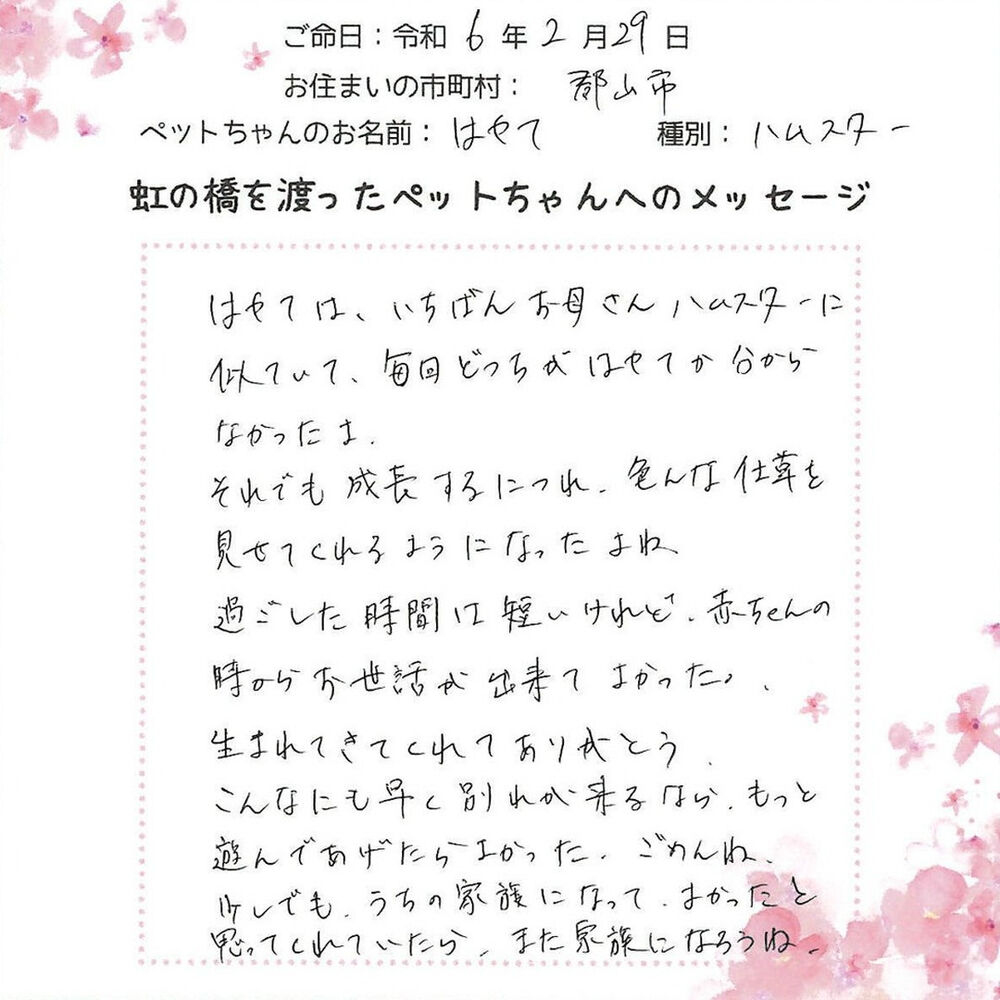 ご命日：令和 6 年 2 月 29 日
お住まいの市町村： 郡山市
ペットちゃんのお名前： はやて 種別： ハムスター
虹の橋を渡ったペットちゃんへのメッセージ
はやては、いちばんお母さんハムスターに
似ていて、毎回どっちがはやてか分から
なかったよ.
それでも成長するにつれ、色んな仕草を
見せてくれるようになったよね
過ごした時間は短いけれど、赤ちゃんの
時からお世話が出来てよかった。
生まれてきてくれてありがとう.
こんなにも早く別れが来るなら、もっと
遊んであげたらよかった、ごめんね、
少しでも、うちの家族になって、よかったと
思ってくれていたら、また家族になろうね.